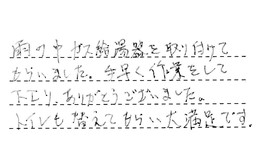 雨の中ガス給湯器を取り付けて
もらいました。手早く作業をして
下さり、ありがとうございました。
トイレも替えてもらい大満足です。